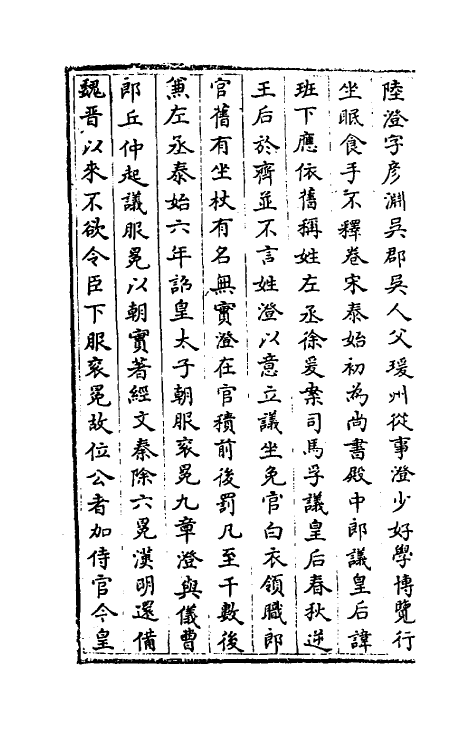 陸澄字彦淵吳郡吳人父瑗州從事澄少好學博覽行
坐眠食手不釋卷宋泰始初為尚書殿中郎議皇后諱
班下應依舊稱姓左丞徐爰案司馬孚議皇后春秋逆
王后於齊並不言姓澄以意立議坐免官白衣領職郎
官舊有坐杖有名無實澄在官積前後罰凡至千數後
兼左丞泰始六年詔皇太子朝服衮冕九章澄與儀曹
郎丘仲起議服冕以朝實著經文秦除六冕漢明還備
魏晋以來不欲令臣下服衮冕故位公者加侍官今皇